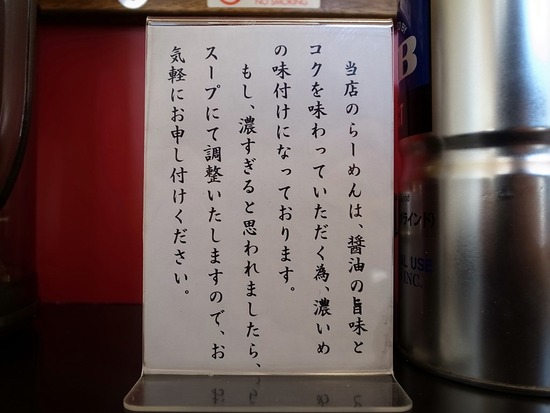 NO SMOKING
当店のらーめんは、醤油の旨味と
コクを味わっていただく為、濃いめ
の味付けになっております。
もし、濃すぎると思われましたら、
スープにて調整いたしますので、お
気軽にお申し付けください。
B
INC.